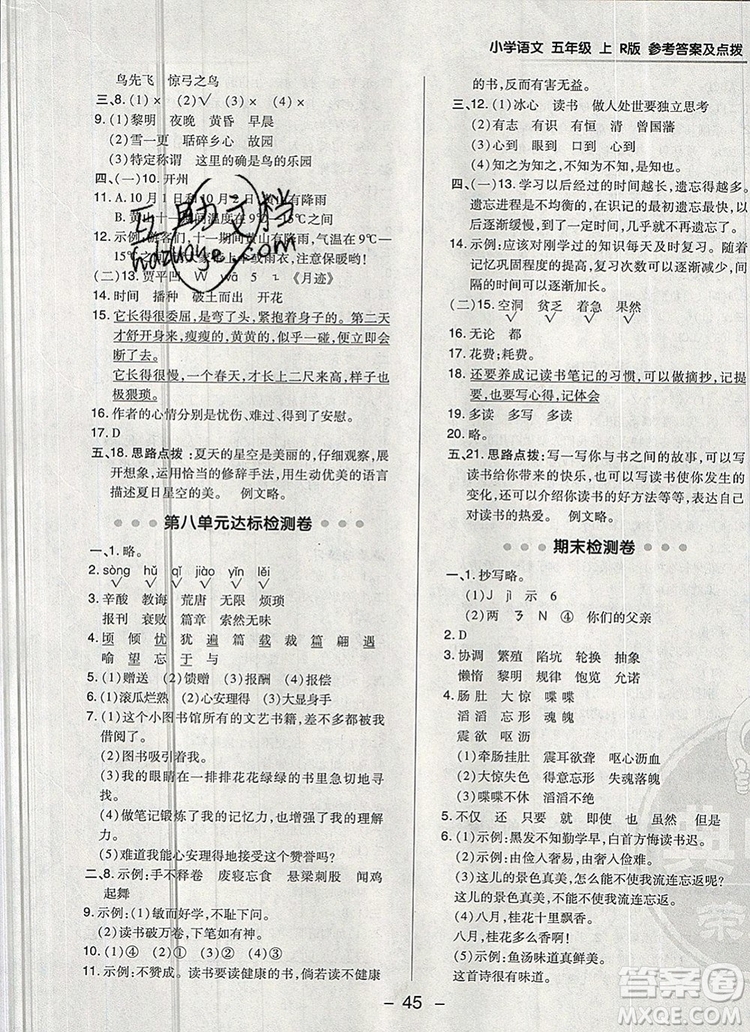 小学语文 五年级 上 R版 参考答案及点拨
鸟先飞 惊弓之鸟
三、8. (1)× (2)√ (3)√ (4)×
9. (1)黎明 夜晚 黄昏 早晨
(2)雪一更 聒碎乡心 故园
(3)特定称谓 这里的确是鸟的乐园
四、(一)10. 开州
11. A. 10月1日和10月2日 有降雨
B. 黄山十一期间 有降雨
12. 示例:游客们,十一期间黄山有降雨,气温在9℃—
15℃,请带好雨衣,注意保暖哟!
(二)13. 贾平凹 W wā 5 ㄋ 《月迹》
14. 时间 播种 破土而出 开花
15. 它长得很委屈,是弯了头,紧抱着身子的。第二天
才舒开身来,瘦瘦的,黄黄的,似乎一碰,便立即会
断了去。
它长得很慢,一个春天,才长上二尺来高,样子也
极猥琐。
16. 作者的心情分别是忧伤、难过、得到了安慰。
17. D
五、18. 思路点拨:夏天的星空是美丽的,仔细观察,展
开想象,运用恰当的修辞手法,用生动优美的语言
描述夏日星空的美。 例文略。
第八单元达标检测卷
一、1. 略。
2. sòng hǔ qǐ jiào yǐn lěi
3. 辛酸 教诲 荒唐 无限 烦琐
报刊 衰败 篇章 索然无味
4. 顷 倾 忧 犹 遍 篇 裁 载 篇 翩 遇
喻 望 忘 于 与
5. (1)赠送 (2)馈赠 (3)报酬 (4)报偿
6. (1)滚瓜烂熟 (2)心安理得 (3)大显身手
7. (1)这个小图书馆所有的文艺书籍,差不多都被我
借阅了。
(2)图书吸引着我。
(3)我的眼睛在一排排花花绿绿的书里急切地寻
找。
(4)做笔记锻炼了我的记忆力,也增强了我的理解
力。
(5)难道我能心安理得地接受这个赞誉吗?
二、8. 示例:手不释卷 废寝忘食 悬梁刺股 闻鸡
起舞
9. 示例:(1)敏而好学,不耻下问。
(2)读书破万卷,下笔如有神。
10. (1)④ (2)① (3)② (4)③
11. 示例:不赞成。读书要读健康的书,倘若读不健康
的书,有害无益。
三、12. (1)冰心 读书 做人处世要独立思考
(2)有志 有识 有恒 清 曾国藩
(3)心到 眼到 口到
(4)知之为知之,不知为不知,是知也。
四、(一)13. 学习以后经过的时间越长,遗忘得越多。
遗忘的进程是不均衡的,在识记的最初遗忘最快,
以后逐步缓慢。
14. 示例:应该对刚学过的知识每天及时复习。随着
记忆巩固程度的提高,复习次数可以逐渐减少,
间隔时间可以逐渐加长。
(二)15. 空洞 贫乏 着急 果然
16. 无论 都
17. 花费;耗费。
18. 还要养成记读书笔记的习惯,可以做摘录,记提
要,也可以写心得。
19. 多读 多写 多问
20. 略。
五、21. 思路点拨:写一写你与书之间的故事,可以写
读书带给你的快乐,也可以写读书使你发生的
变化,还可以介绍你读书的方法,表达自己
对读书的热爱。 例文略。
期末检测卷
一、1. 抄写略。
(1)J jì 示 6
(2)两 3 N ④ 你们的父亲
2. D
3. 协调 繁殖 陷坑 轮换 抽象
懒惰 暗示 规律 饱览 允诺
4. 肠 肚 大 惊 喋 喋
滔 滔 忘 形 魂 魄
震 欲 呕 沥
(1)牵肠挂肚 震耳欲聋 呕心沥血
(2)大惊失色 得意忘形 失魂落魄
(3)喋喋不休 滔滔不绝
5. 不仅 还 即使 也 虽然 但是
6. (1)示例:黑发不知勤学早,白首方悔读书迟。
(2)示例:那里的天空很蓝。
(3)示例:这儿的景色真美,怎么能不使我流连忘返?
这儿的景色真美,怎能不使我流连忘返呢?
(4)八月,桂花十里飘香。
八月,桂花多么香啊!
(5)示例:鱼汤味道很好。
这首诗很有味道。
- 45 -
互助文档
hdzuoye.com
答案圈
MXQE.COM